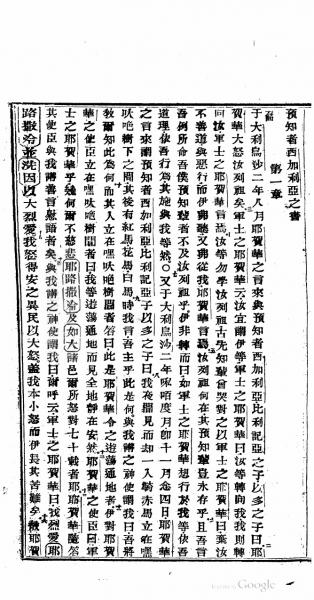 預知者西加利亞之書
第一章
于大利烏沙二年八月耶賀華之言來與預知者西加利亞比利記亞之子以多之子曰耶
賀華大怒汝列祖矣軍士之耶賀華云汝宜謂伊等軍士之耶賀華曰汝等轉向我我則轉
回汝軍士之耶賀華言焉汝等勿學汝列祖古先知輩曾哭對之以軍士之耶賀華曰汝
不善道與惡行而伊弗聽又弗從我耶賀華言焉汝列祖何在其預知輩豈永存乎且吾言
吾例所命吾僕預知輩者不及汝列祖乎伊非轉而曰如軍士之耶賀華想行於我等依吾
道理依吾行為其施與我等然○又于大利烏沙二年咟度月即十一月念四日耶賀華
之言來謂預知者西加利亞比利記亞子以多之子曰我夜間見而却一人騎赤馬立在嘿
吠吔樹下之間其後有紅馬花馬白馬時我言吾主乎此是何與我講之神使謂我曰吾將
教爾知此為何而其人立在嘿吠吔樹間者答曰此是耶賀華令之遊蕩遍地者伊對耶賀
華之使臣立在嘿吠吔樹間者曰我等遊蕩通地而見全地靜在安然耶賀華之使臣曰軍
士之耶賀華乎幾何爾不慈悲耶路撒冷及如大諸邑爾所怒對七十載者耶耶賀華隨答
其使臣與我講善言慰語者矣與我講之神使謂我曰爾呼云軍士之耶賀華曰我烈愛耶
路撒冷並洗因以大烈愛我怒得安之異民以大怒蓋我本小怒而伊長其苦難矣故耶賀
Google